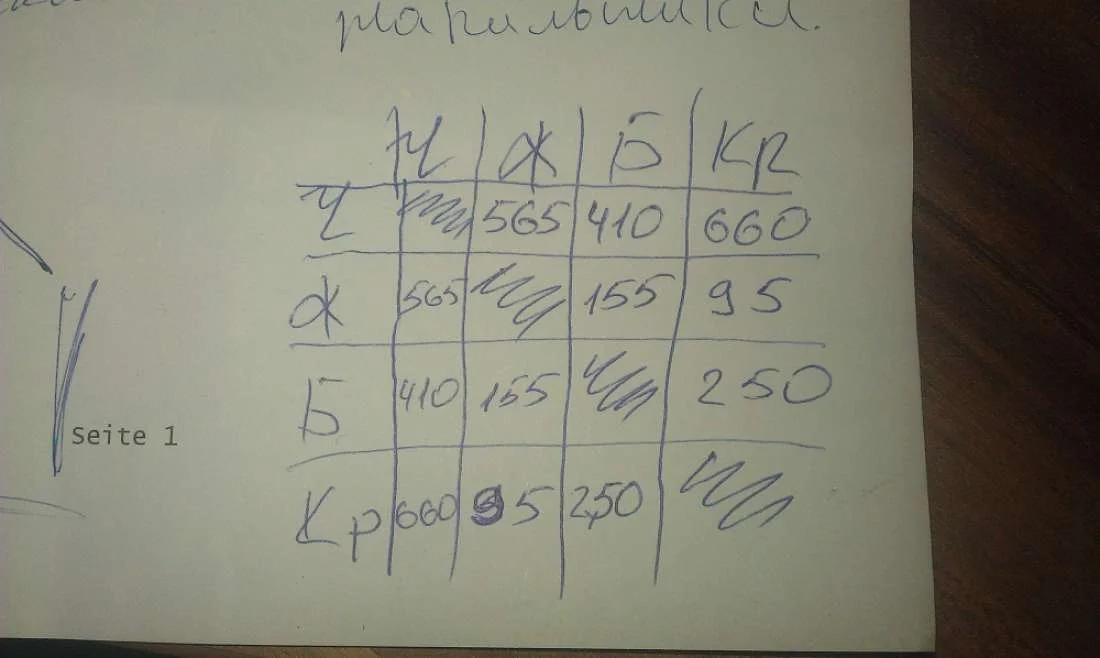 Ч Ж Б Кр
Ч 565 410 660
Ж 565 155 95
Б 410 155 250
Seite 1
Кр 660 95 250